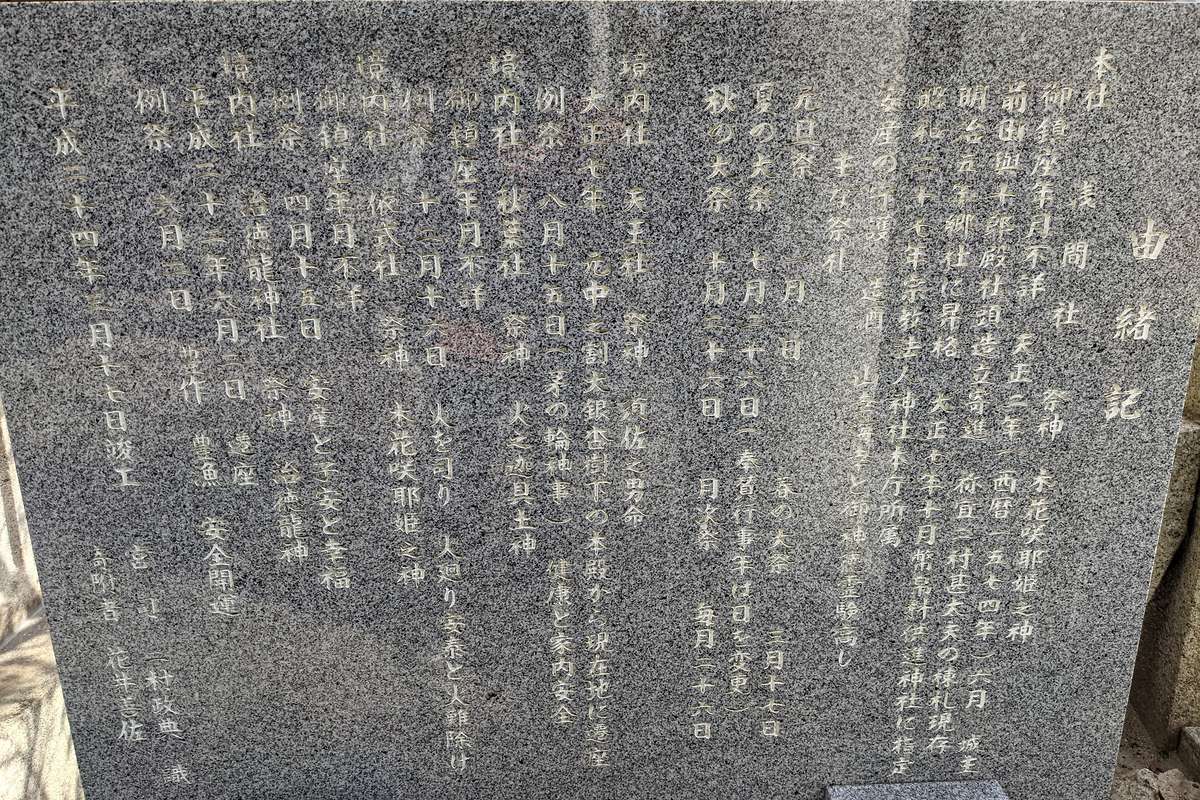 由緒記
本社 浅間社 祭神 木花咲耶姫之神
御鎮座年月不詳 天正二年(西暦一五七四年)六月 城主
前田與十郎殿社頭造立寄進 祢宜二村甚太夫の棟札現存
明治五年郷社に昇格 大正七年十月幣帛料供進神社に指定
昭和二十七年宗教法人神社本庁所属
安産の守護 造酒 山幸海幸と御神徳霊験高し
主な祭礼
元旦祭 一月一日 春の大祭 三月十七日
夏の大祭 七月二十六日(奉賛行事年は日を変更)
秋の大祭 十月二十六日 月次祭 毎月二十六日
境内社 天王社 祭神 須佐之男命
大正七年 元中之割大銀杏樹下の本殿から現在地に遷座
例祭 八月十五日(茅の輪神事) 健康と家内安全
境内社 秋葉社 祭神 火之迦具土神
御鎮座年月不詳 火を司り 火廻り安泰と火難除け
例祭 十二月十六日
境内社 依弐社 祭神 木花咲耶姫之神
御鎮座年月不詳 安産と子安と幸福
例祭 四月十五日
境内社 治徳龍神社 祭神 治徳龍神
平成二十三年六月二日 遷座 安全開運
例祭 六月二日 豊作 豊魚
平成二十四年三月十七日竣工
宮司 二村政典 識
寄附者 花井喜佐